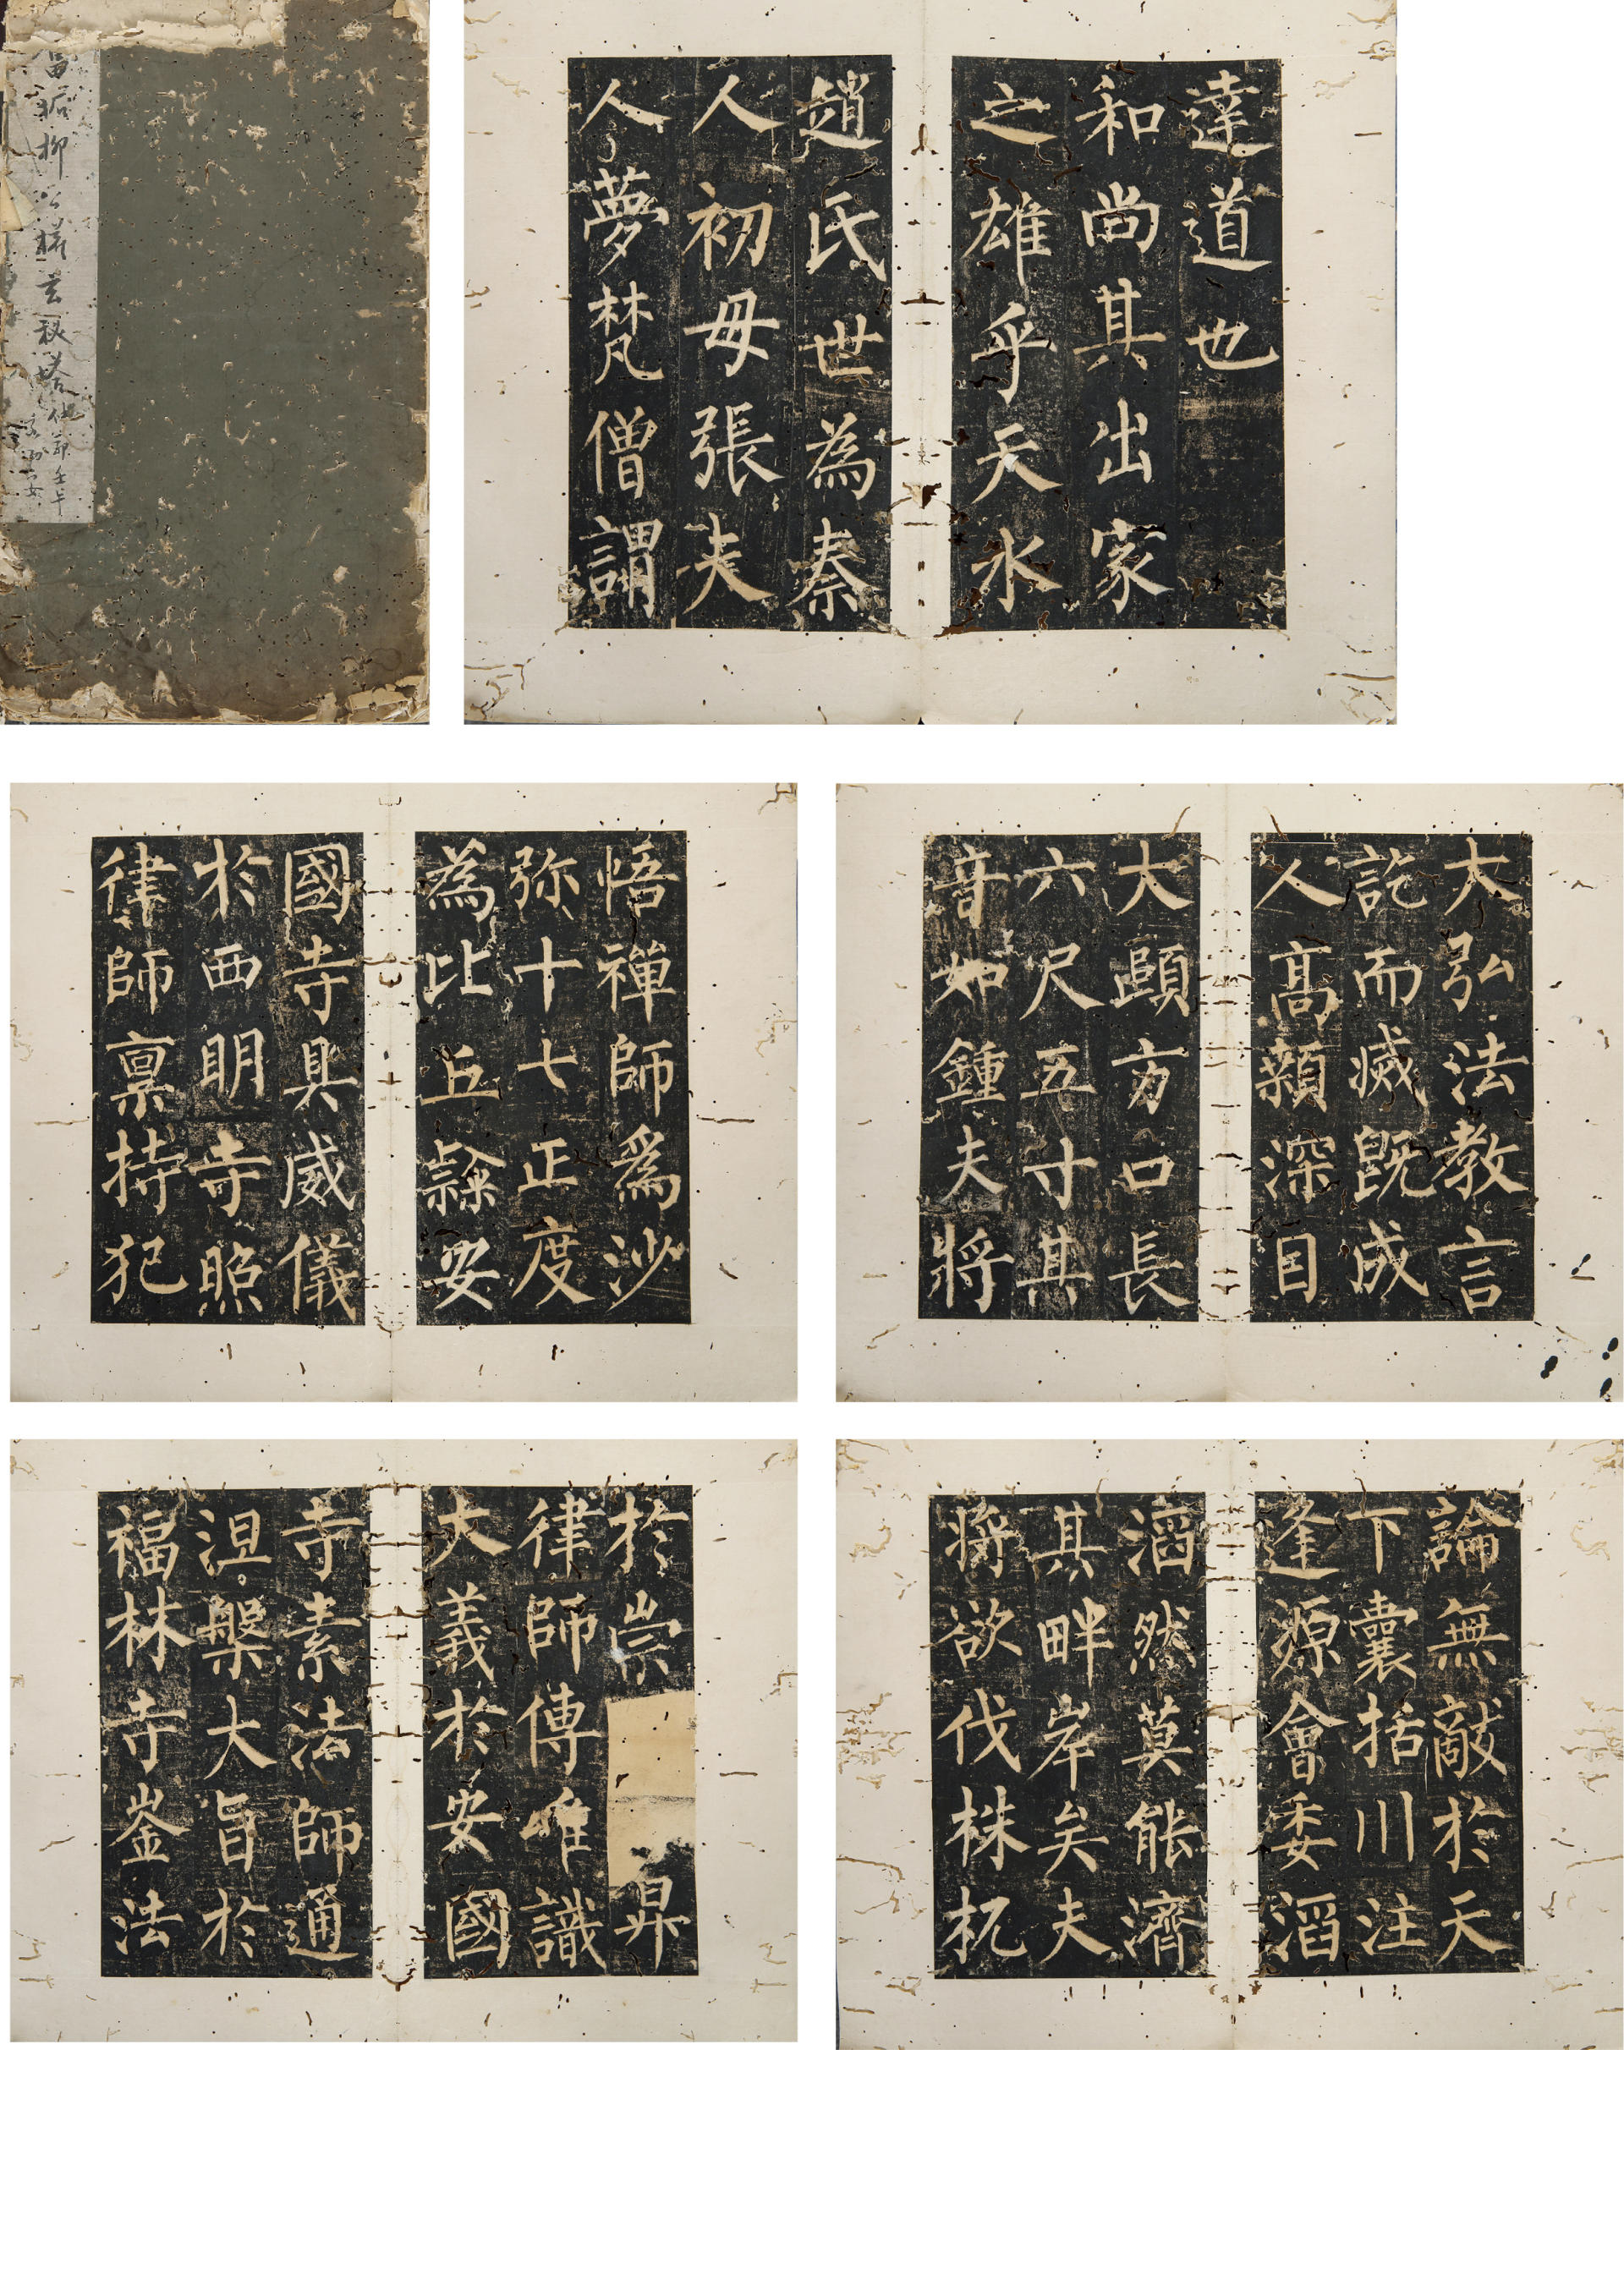 舊拓柳公權玄秘塔
達道也
和尚其出家
之雄乎天水
趙氏世為秦
人初母張夫
人夢梵僧謂
悟禪師為沙
弥十七正度
為比丘隸安
國寺具威儀
於西明寺照
律師稟持犯
大弘法教言
訖而滅既成
人高顙深目
大頤方口長
六尺五寸其
音如鍾夫將
於崇昇
律師傳唯識
大義於安國
寺素法師通
涅槃大旨於
福林寺崟法
論無敵於天
下囊括川注
逢源會委滔
滔然莫能濟
其畔岸矣夫
將欲伐株杌